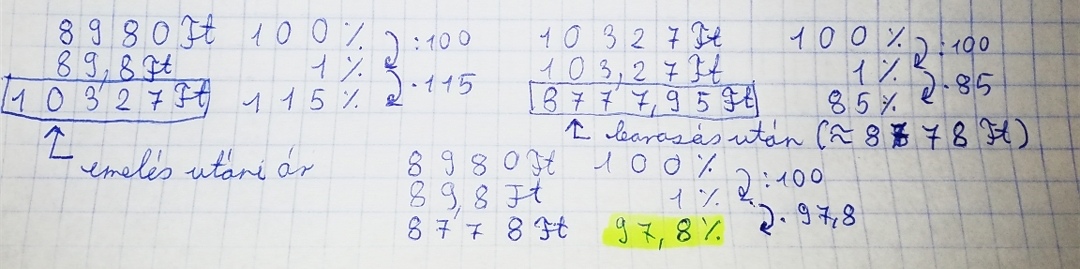 8980 Ft 100% :100
89,8 Ft 1% ·115
10327 Ft 115%
emelés utáni ár
10327 Ft 100% :100
103,27 Ft 1% ·85
8777,95 Ft 85%
leárazás után (≈ 8778 Ft)
8980 Ft 100% :100
89,8 Ft 1% ·97,8
8778 Ft 97,8%